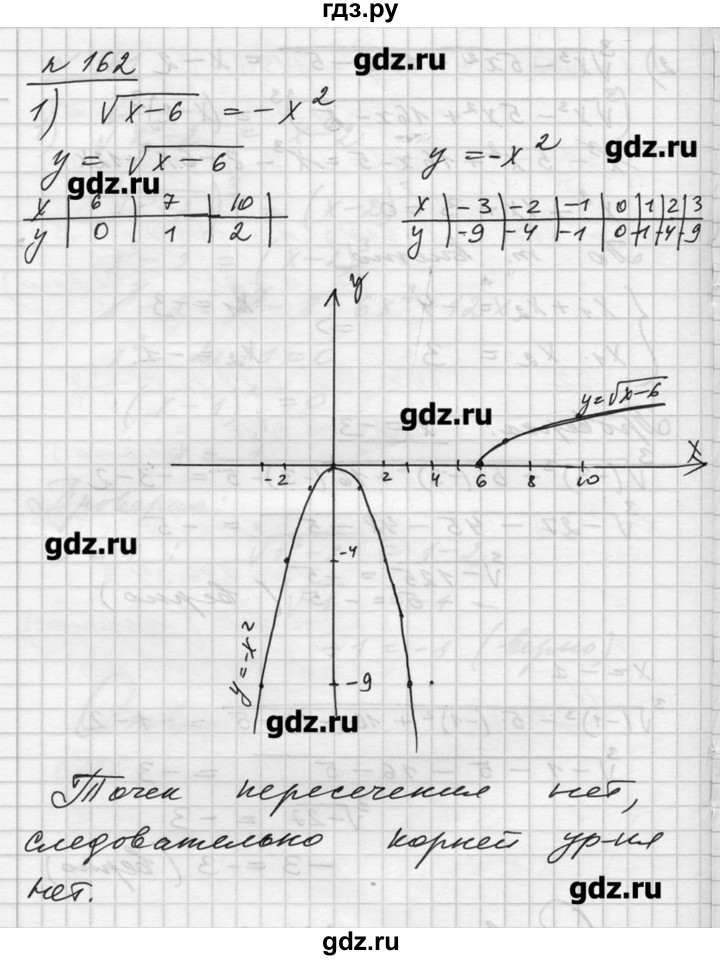 гдз.ру
N 162
gdz.ru
1) √(x-6) = -x²
y = √(x-6)
y = -x²
gdz.ru
gdz.ru
x | 6 | 7 | 10 |
y | 0 | 1 | 2 |
x | -3 | -2 | -1 | 0 | 1 | 2 | 3
y | -9 | -4 | -1 | 0 | -1 | -4 | -9
y
y=√(x-6)
gdz.ru
x
-2 2 4 6 8 10
gdz.ru
-4
y=-x²
-9
gdz.ru
Точек пересечения нет,
следовательно корней ур-ия
нет.
gdz.ru
gdz.ru